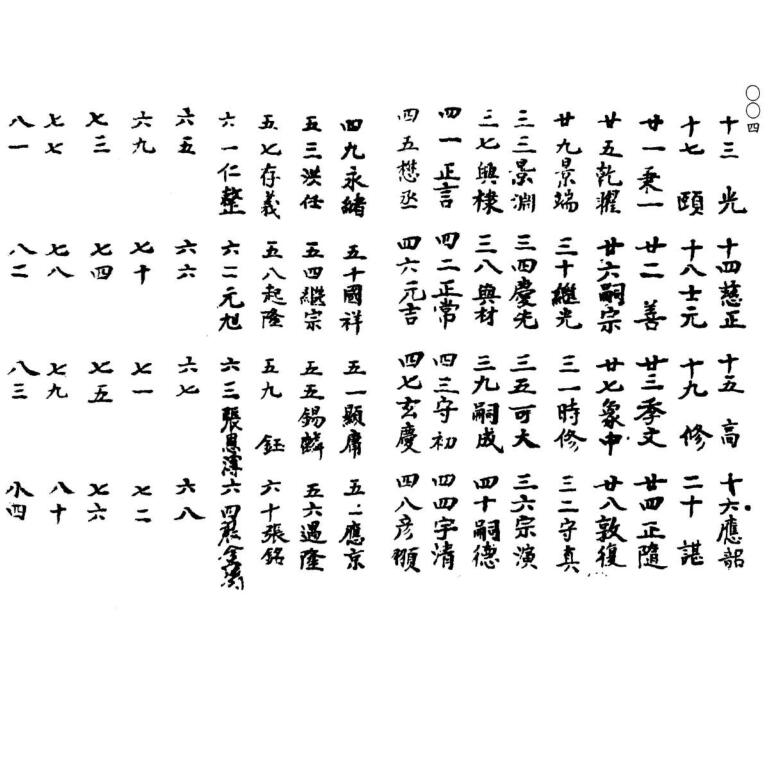 〇〇四
十三 光 十四慈正 十五 高 十六應韶
十七 頤 十八士元 十九 修 二十 諶
廿一秉一 廿二 善 廿三季文 廿四正隨
廿五乾曜 廿六嗣宗 廿七象中 廿八敦復
廿九景端 三十繼光 三一時修 三二守真
三三景淵 三四慶先 三五可大 三六宗演
三七與棣 三八與材 三九嗣成 四十嗣德
四一正言 四二正常 四三宇初 四四宇清
四五懋丞 四六元吉 四七玄慶 四八彦頨
四九永緒 五十國祥 五一顯庸 五二應京
五三洪任 五四繼宗 五五錫麟 五六遇隆
五七存義 五八起隆 五九 鈺 六十張銘
六一仁整 六二元旭 六三張恩溥 六四
六五 六六 六七 六八
六九 七十 七一 七二
七三 七四 七五 七六
七七 七八 七九 八十
八一 八二 八三 八四